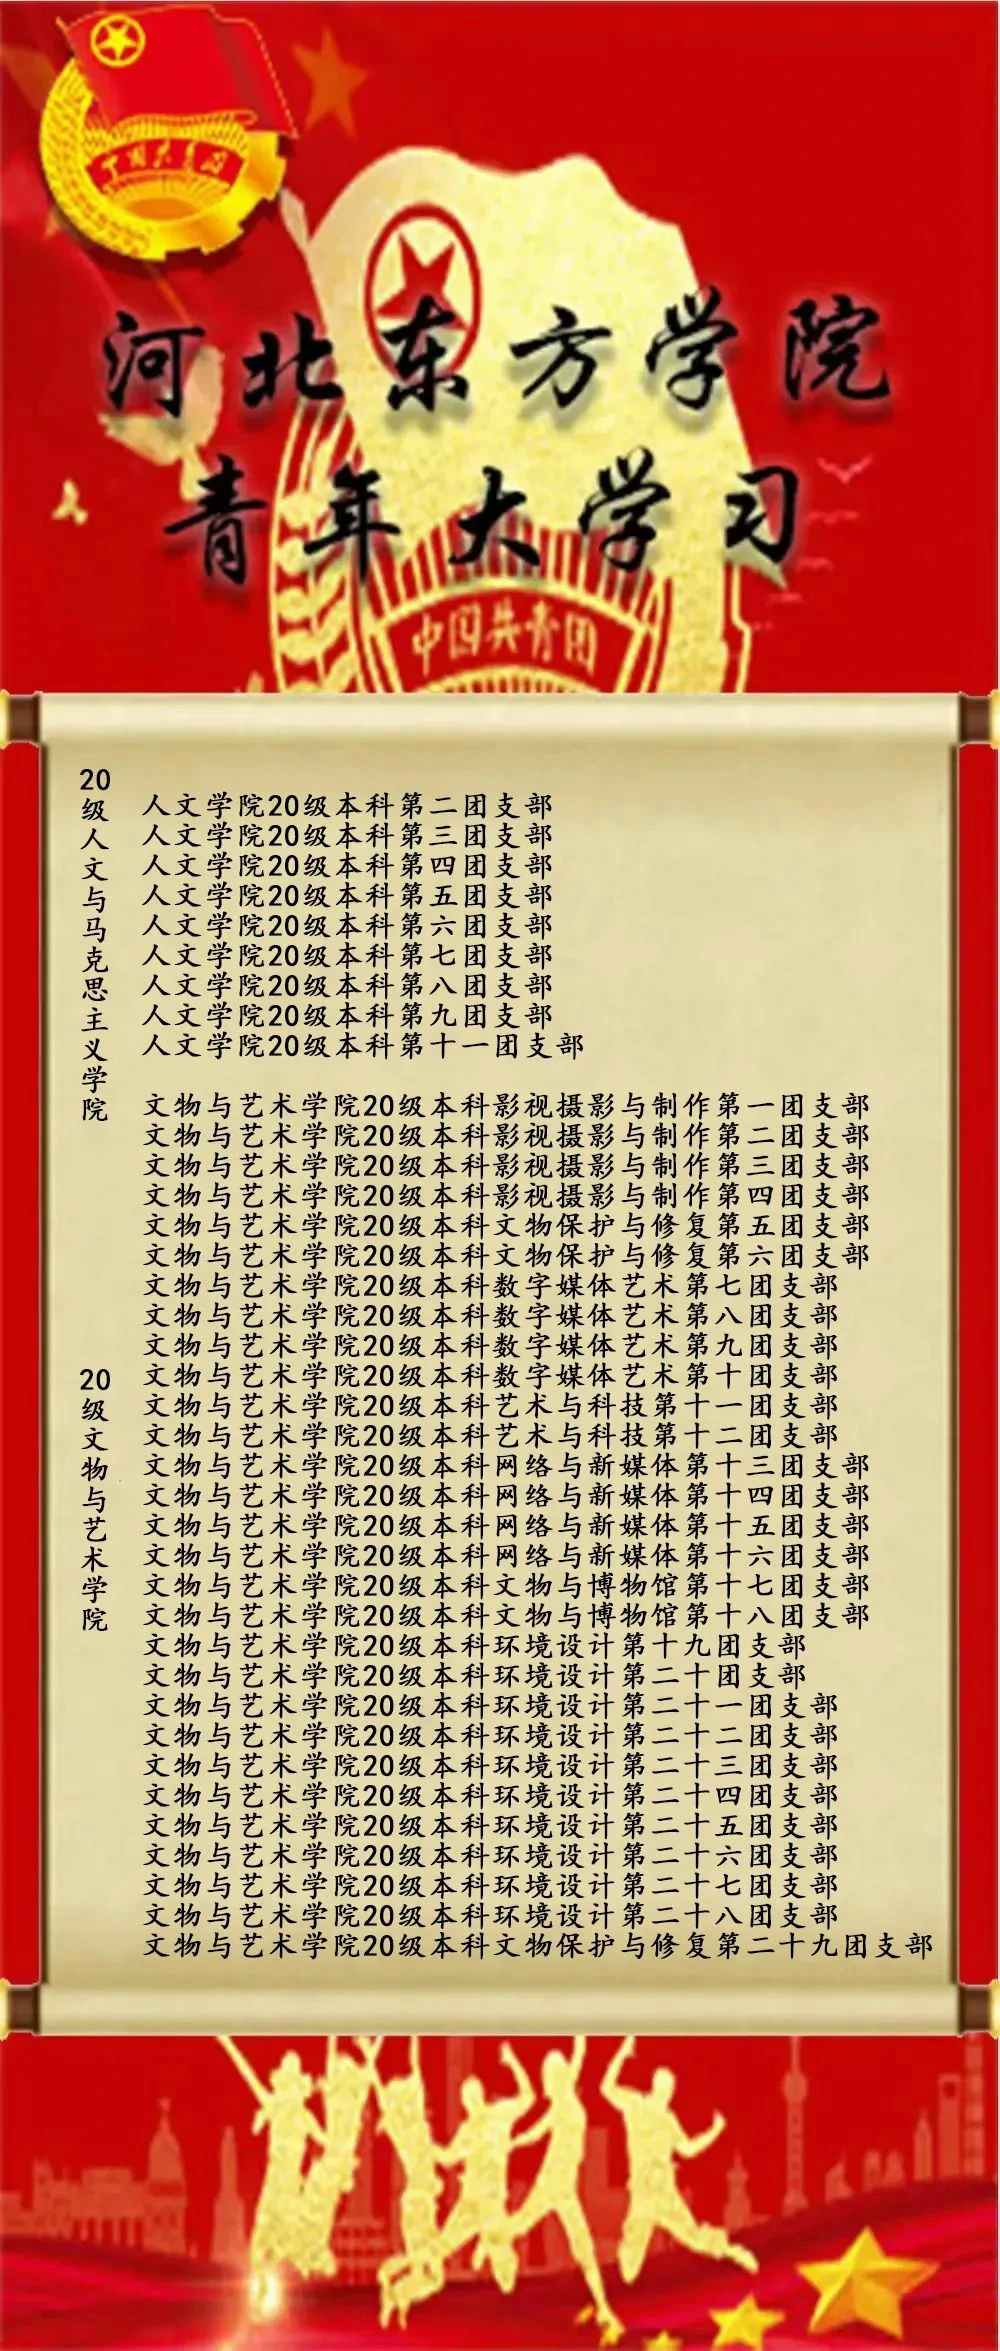 中国共青团
河北东方学院
青年大学习
中国共青团
20级人文与马克思主义学院
人文学院20级本科第二团支部
人文学院20级本科第三团支部
人文学院20级本科第四团支部
人文学院20级本科第五团支部
人文学院20级本科第六团支部
人文学院20级本科第七团支部
人文学院20级本科第八团支部
人文学院20级本科第九团支部
人文学院20级本科第十一团支部
20级文物与艺术学院
文物与艺术学院20级本科影视摄影与制作第一团支部
文物与艺术学院20级本科影视摄影与制作第二团支部
文物与艺术学院20级本科影视摄影与制作第三团支部
文物与艺术学院20级本科影视摄影与制作第四团支部
文物与艺术学院20级本科文物保护与修复第五团支部
文物与艺术学院20级本科文物保护与修复第六团支部
文物与艺术学院20级本科数字媒体艺术第七团支部
文物与艺术学院20级本科数字媒体艺术第八团支部
文物与艺术学院20级本科数字媒体艺术第九团支部
文物与艺术学院20级本科数字媒体艺术第十团支部
文物与艺术学院20级本科艺术与科技第十一团支部
文物与艺术学院20级本科艺术与科技第十二团支部
文物与艺术学院20级本科网络与新媒体第十三团支部
文物与艺术学院20级本科网络与新媒体第十四团支部
文物与艺术学院20级本科网络与新媒体第十五团支部
文物与艺术学院20级本科网络与新媒体第十六团支部
文物与艺术学院20级本科文物与博物馆第十七团支部
文物与艺术学院20级本科文物与博物馆第十八团支部
文物与艺术学院20级本科环境设计第十九团支部
文物与艺术学院20级本科环境设计第二十团支部
文物与艺术学院20级本科环境设计第二十一团支部
文物与艺术学院20级本科环境设计第二十二团支部
文物与艺术学院20级本科环境设计第二十三团支部
文物与艺术学院20级本科环境设计第二十四团支部
文物与艺术学院20级本科环境设计第二十五团支部
文物与艺术学院20级本科环境设计第二十六团支部
文物与艺术学院20级本科环境设计第二十七团支部
文物与艺术学院20级本科环境设计第二十八团支部
文物与艺术学院20级本科文物保护与修复第二十九团支部